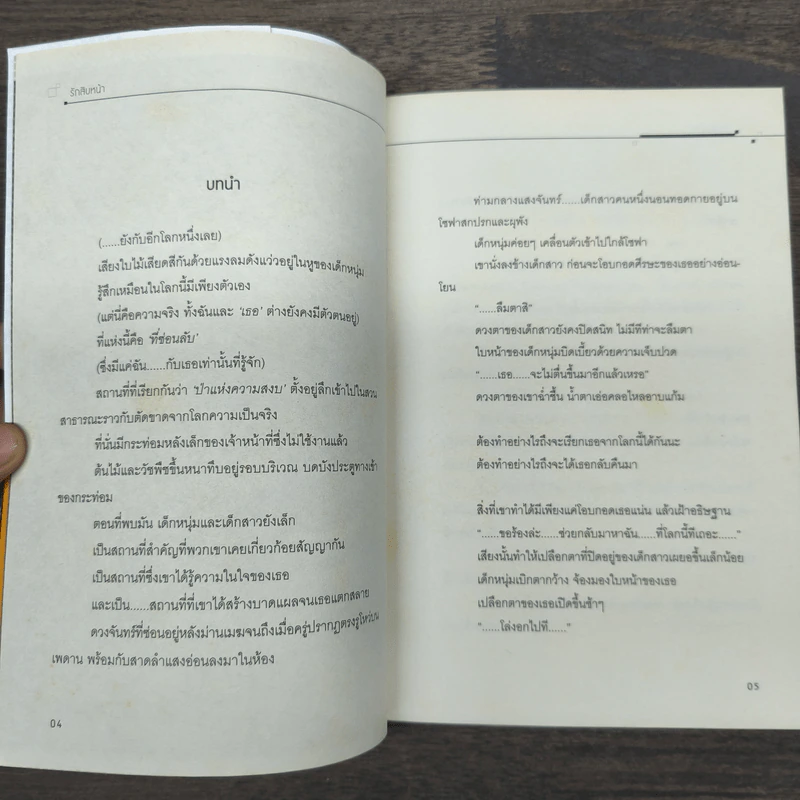 รักสิบหน้า
บทนำ
(......ยังกับอีกโลกหนึ่งเลย)
เสียงใบไม้เสียดสีกันด้วยแรงลมดังแว่วอยู่ในหูของเด็กหนุ่ม
รู้สึกเหมือนในโลกนี้มีเพียงตัวเอง
(แต่นี่คือความจริง ทั้งฉันและ ‘เธอ’ ต่างยังคงมีตัวตนอยู่)
ที่แห่งนี้คือ ‘ที่ซ่อนลับ’
(ซึ่งมีแค่ฉัน......กับเธอเท่านั้นที่รู้จัก)
สถานที่ที่เรียกกันว่า ‘ป่าแห่งความสงบ’ ตั้งอยู่ลึกเข้าไปในสวน
สาธารณะราวกับตัดขาดจากโลกความเป็นจริง
ที่นั่นมีกระท่อมหลังเล็กของเจ้าหน้าที่ซึ่งไม่ใช้งานแล้ว
ต้นไม้และวัชพืชขึ้นหนาทึบอยู่รอบบริเวณ บดบังประตูทางเข้า
ของกระท่อม
ตอนที่พบมัน เด็กหนุ่มและเด็กสาวยังเล็ก
เป็นสถานที่สำคัญที่พวกเขาเคยเกี่ยวก้อยสัญญากัน
เป็นสถานที่ซึ่งเขาได้รู้ความในใจของเธอ
และเป็น......สถานที่ที่เขาได้สร้างบาดแผลจนเธอแตกสลาย
ดวงจันทร์ที่ซ่อนอยู่หลังม่านเมฆจนถึงเมื่อครู่ปรากฏตรงรูโหว่บน
เพดาน พร้อมกับสาดลำแสงอ่อนลงมาในห้อง
04
ท่ามกลางแสงจันทร์......เด็กสาวคนหนึ่งนอนทอดกายอยู่บน
โซฟาสกปรกและผุพัง
เด็กหนุ่มค่อยๆ เคลื่อนตัวเข้าไปใกล้โซฟา
เขานั่งลงข้างเด็กสาว ก่อนจะโอบกอดศีรษะของเธออย่างอ่อน-
โยน
“......ลืมตาสิ”
ดวงตาของเด็กสาวยังคงปิดสนิท ไม่มีทีท่าจะลืมตา
ใบหน้าของเด็กหนุ่มบิดเบี้ยวด้วยความเจ็บปวด
“......เธอ......จะไม่ตื่นขึ้นมาอีกแล้วเหรอ”
ดวงตาของเขาฉ่ำชื้น น้ำตาเอ่อคลอไหลอาบแก้ม
ต้องทำอย่างไรถึงจะเรียกเธอจากโลกนี้ได้กันนะ
ต้องทำอย่างไรถึงจะได้เธอกลับคืนมา
สิ่งที่เขาทำได้มีเพียงแค่โอบกอดเธอแน่น แล้วเฝ้าอธิษฐาน
“......ขอร้องล่ะ......ช่วยกลับมาหาฉัน......ที่โลกนี้ทีเถอะ......”
เสียงนั้นทำให้เปลือกตาที่ปิดอยู่ของเด็กสาวเผยอขึ้นเล็กน้อย
เด็กหนุ่มเบิกตากว้าง จ้องมองใบหน้าของเธอ
เปลือกตาของเธอเปิดขึ้นช้าๆ
“......โล่งอกไปที......”
05